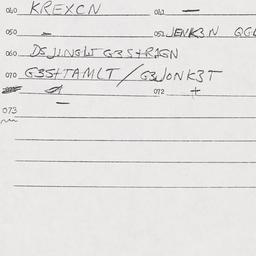 040 KREXCN 041 —
050 - 051 JENK3N QGL
060 DSJINGLJ G3S+RAGN
070 G3S+TAMLT / G3JONK3T
072 +
073